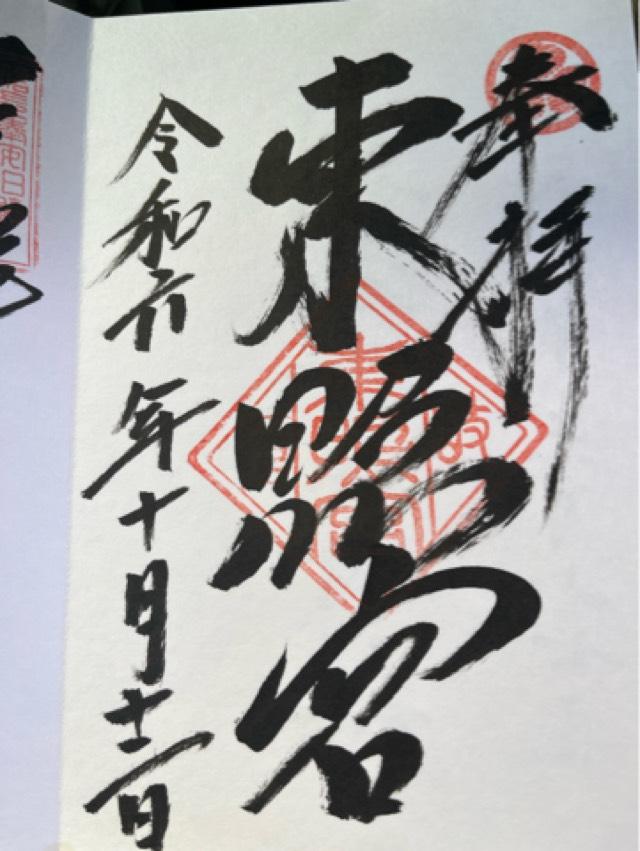 奉拝
東照宮
令和六年十月十二日
東照宮